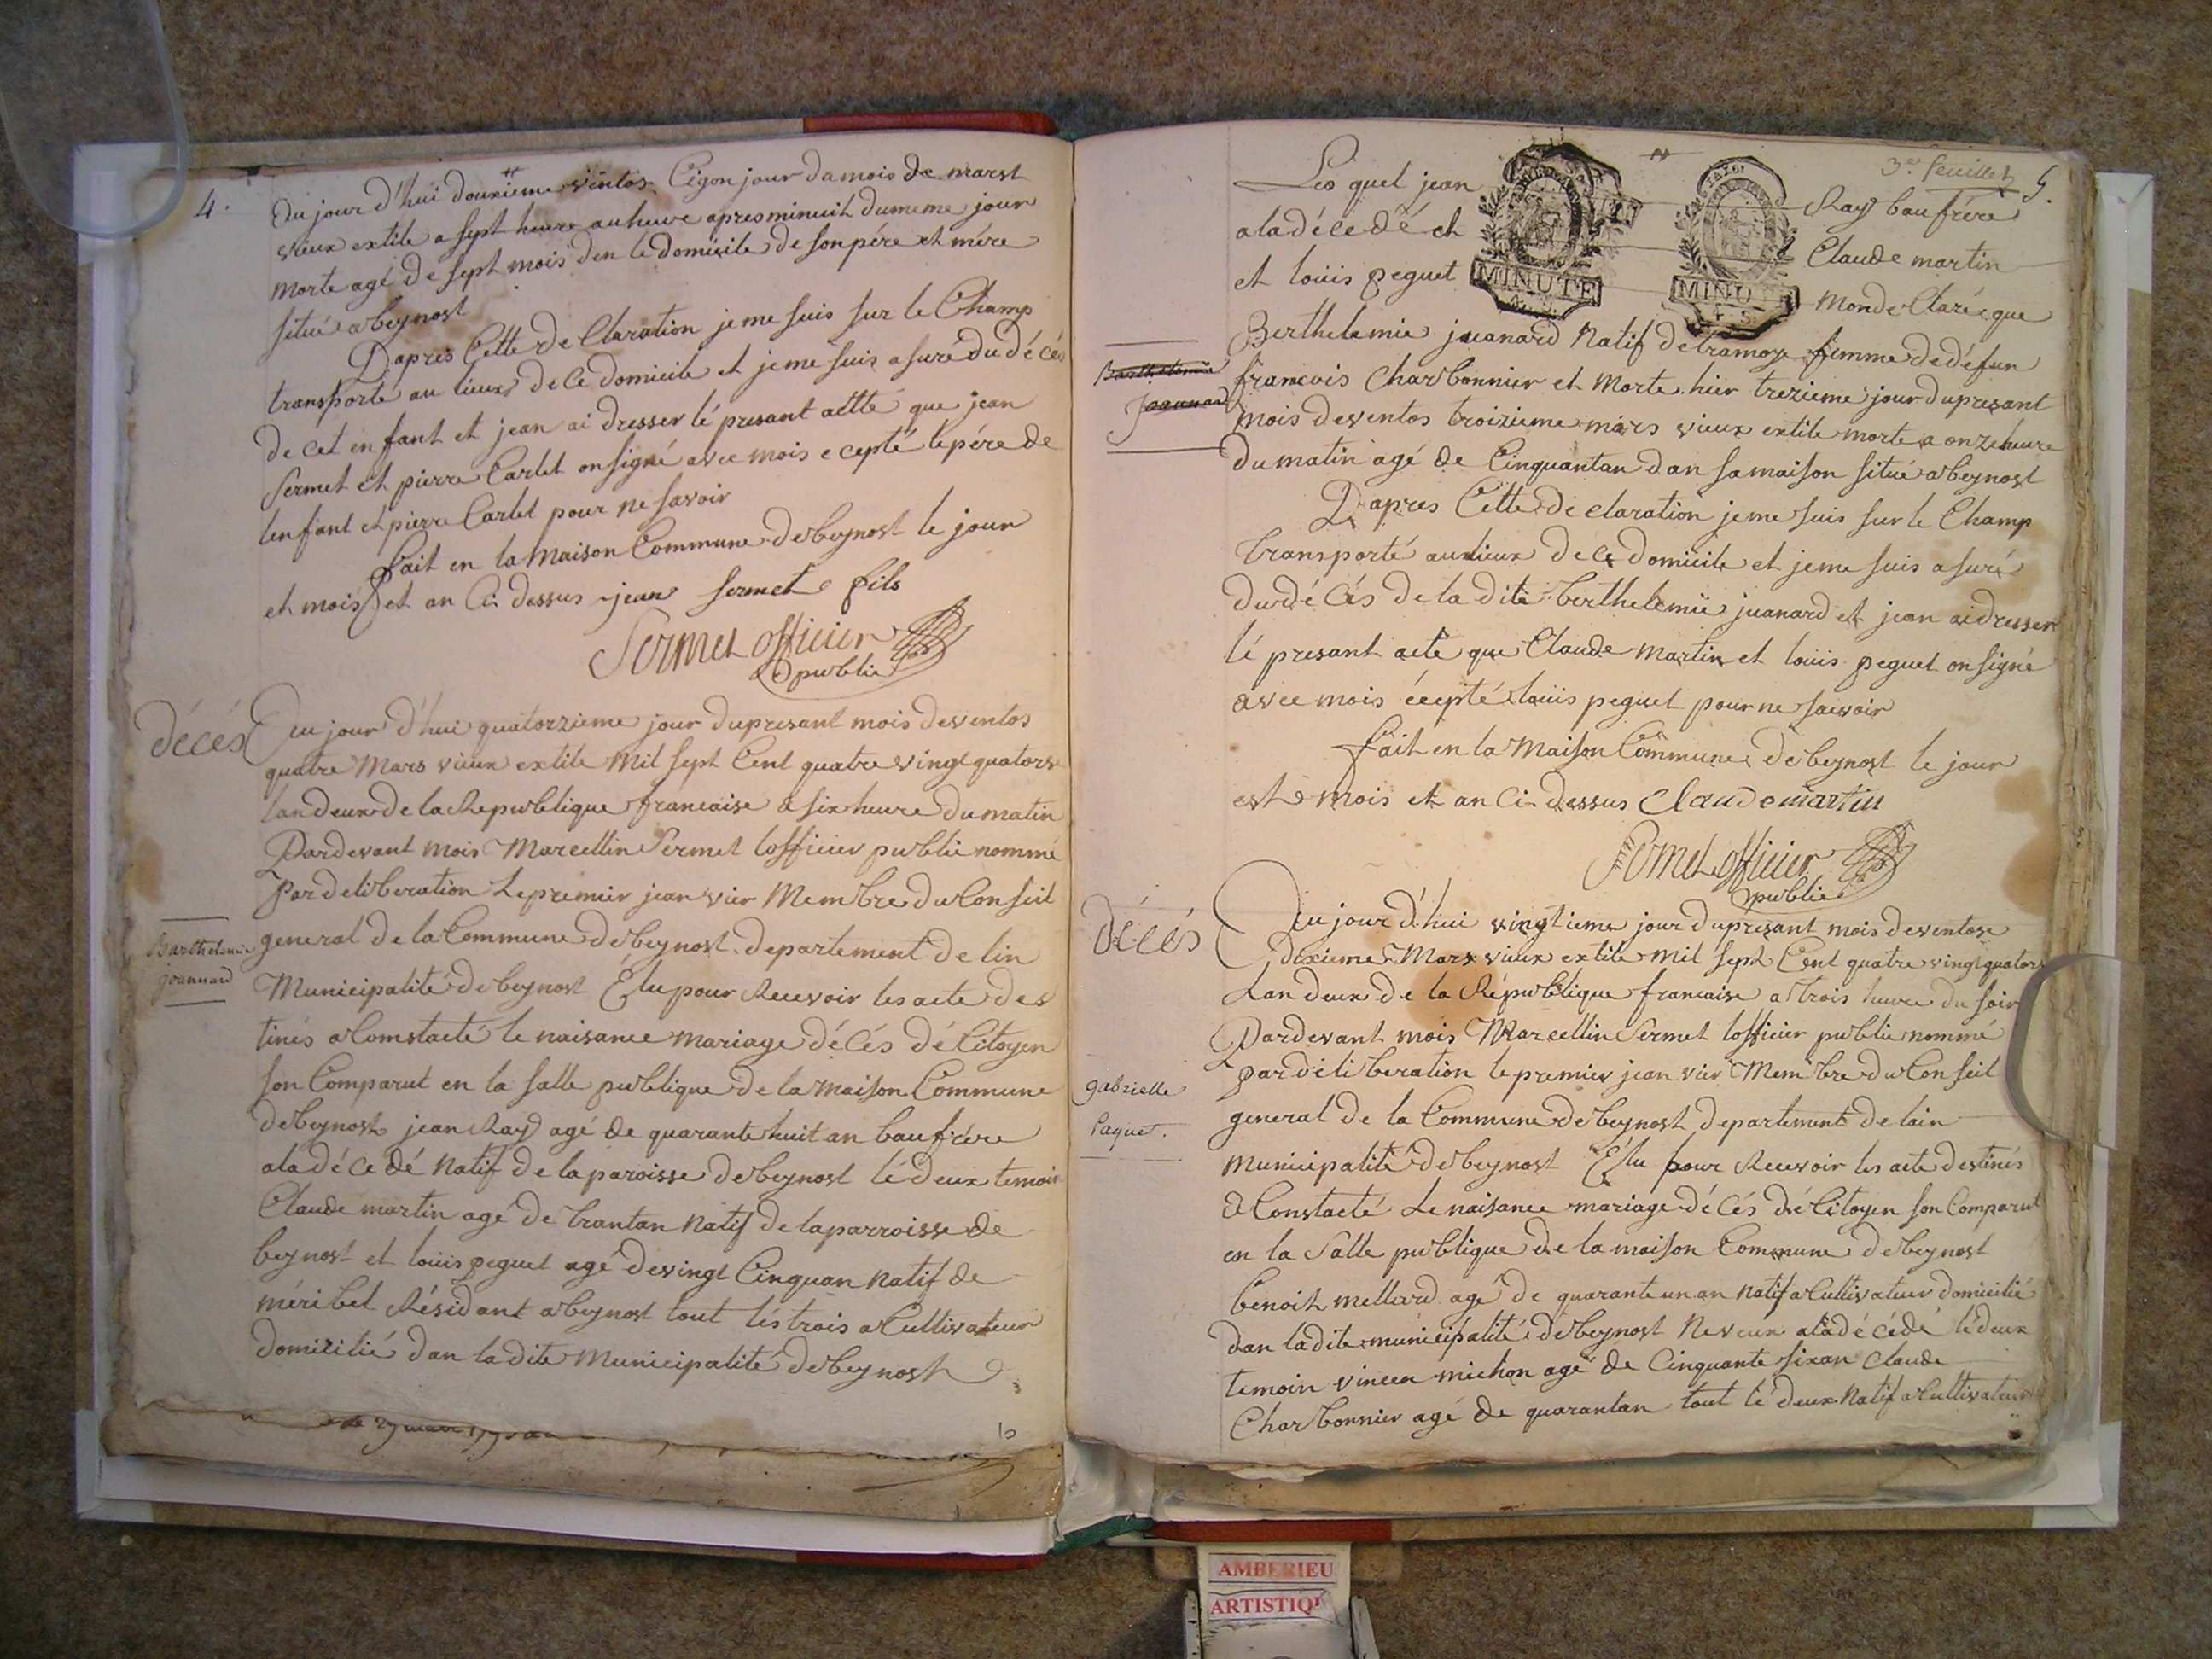 4.
Du jour d'hui douxieme ventos Cegon jour da mois de marst
vieux extile a sept heure au heure apres minuit du meme jour
morte agé de sept mois den le domicile de son pére et mére
situé a beynost
Dapres Cette de Claration je me suis sur le Champ
transporté au lieux de Ce domicile et je me suis asuré du décés
de cet enfant et jean ai dresser lé presant attté que jean
Sermet et pierre Carlet on signé avec mois ecepté le pére de
lenfant et pierre Carlet pour ne savoir
fait en la maison Commune de beynost le jour
et mois et an Ci dessus jean sermet fils
Sermet officier
public
décés
Du jour d'hui quatorzieme jour du presant mois de ventos
quatre Mars vieux extile mil sept Cent quatre vingt quators
lan deux de la Republique francaise a six heure du matin
Pardevant mois Marcellin Sermet lofficier public nommé
par deliberation Le premier jeanvier Membre du Conseil
Barthelemie
Joannard
general de la Commune de beynost departement de lin
Municipalité de beynost Élu pour Recevoir les acte des
tinés a Comstacté le naisance mariage décés dé Citoyen
son Comparut en la salle publique de la maison Commune
de beynost jean Ray agé de quarante huit an baufrére
a la décedé Natif de la paroisse de beynost lé deux temoin
Claude martin agé de trantan Natif de la parroisse de
beynost et louis peguet agé de vingt Cinquan Natif de
méribel Résidant a beynost tout lés trois a Cultivateur
domicilié dan la dite Municipalité de beynost
3e feuillet
5.
Les quel jean Ray baufrére
a la décedé et Claude martin
et louis peguet mon de Claré que
MINUTE
MINU
Berthelemie juanard Natif de tramoye femme de défun
Barthelemie
Joannard
francois Charbonnier et Morte hier trezieme jour du presant
mois de ventos troizieme mars vieux extile morte a onze heure
du matin agé de Cinquantan dan sa maison situé a beynost
Dapres Cette de claration je me suis sur le Champ
transporté au lieux de Ce domicile et je me suis asuré
du décés de la dite berthelemie juanard et jean ai dresser
lé presant acte que Claude Martin et louis peguet on signé
avec mois écepté louis peguet pour ne saevoir
fait en la Maison Commune de beynost le jour
est mois et an Ci dessus Claude martin
Sermet officier
public
décés
Du jour d'hui vingtieme jour du presant mois de ventose
dixieme Mars vieux extile mil sept Cent quatre vingt quators
Lan deux de la République francaise a trois heure du soir
Pardevant mois Marcellin Sermet lofficier public nommé
par déliberation le premier jeanvier Membre du Conseil
gabrielle
Paquet.
general de la Commune de beynost departement de lain
municipalité de beynost Élu pour Recevoir les acte destinés
a Constacté Le naisance mariage décés dé Citoyen son Comparut
en la Salle publique de la maison Commune de beynost
benoit mellard agé de quarante un an natif a Cultivateur domicilié
dan la dite municipalité de beynost Neveux a la décédé lé deux
temoin vincen michon agé de Cinquante six an Claude
Charbonnier agé de quarantan tout lé deux Natif a Cultivateur
AMBERIEU
ARTISTIQ